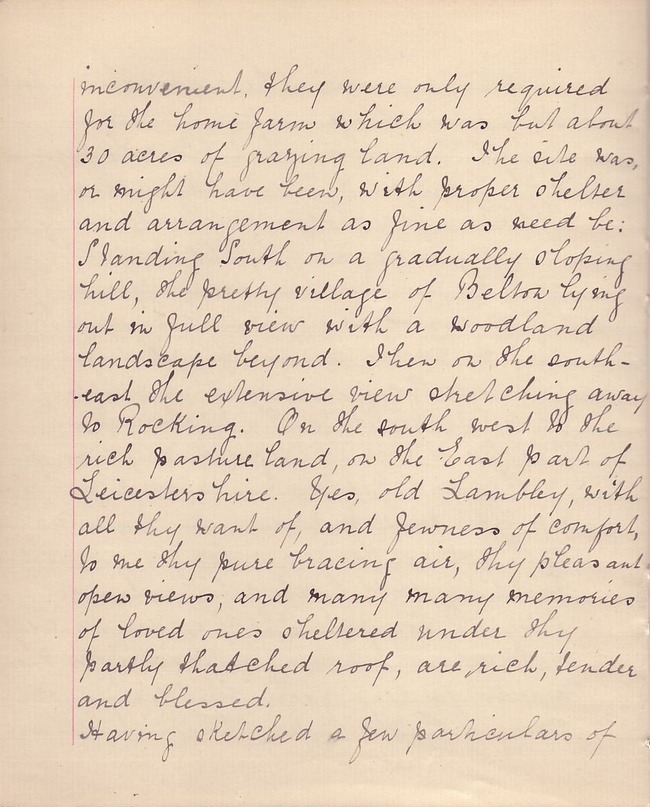 inconvenient, they were only required
for the home farm which was but about
30 acres of grazing land. The site was,
or might have been, with proper shelter
and arrangement as fine as need be:
Standing South on a gradually sloping
hill, the pretty village of Belton lying
out in full view with a woodland
landscape beyond. Then on the south-
-east the extensive view stretching away
to Rocking. On the south west to the
rich pasture land, on the East part of
Leicestershire. Yes, old Lambley, with
all thy want of, and fewness of comfort,
to me thy pure bracing air, thy pleasant
open views, and many many memories
of loved ones sheltered under thy
partly thatched roof, are, rich, tender
and blessed.
Having sketched a few particulars of